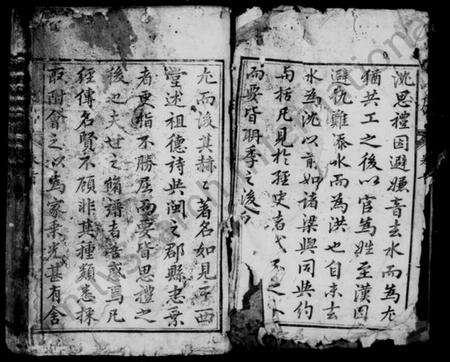 沈思禮因避嫌音去水而為尤
猶共工之後以官為姓至漢因
避仇難添水而為洪也自未去
水為沈以前如諸梁與同與約
與括凡見於經史者
而要皆聃季之後
尤而後其赫赫著名如見于西
堂述祖德詩與閩之郡縣志葉
者更指不勝屈而要皆思禮之
後也夫世之脩譜者吾惑焉凡
經傳名賢不顧非其種類悉採
取附會之以為家乘光甚有舍